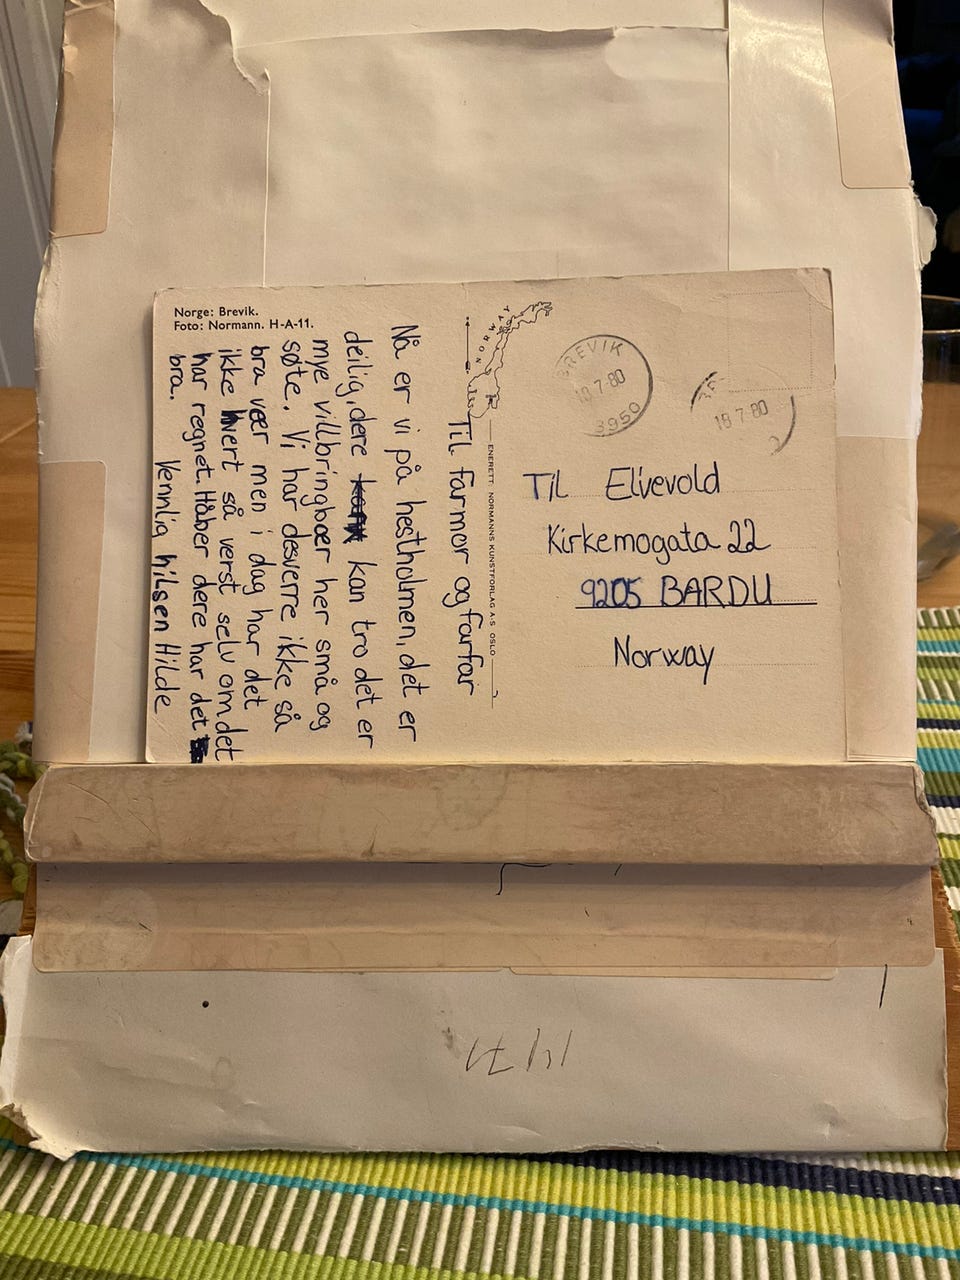 Norge: Brevik.
Foto: Normann. H-A-11.
Til farmor og farfar
Nå er vi på hestholmen, det er
deilig, dere kan tro det er
mye villbringbær her små og
søte. Vi har desverre ikke så
bra vær men i dag har det
ikke hvert så verst selv om det
har regnet. Håber dere har det
bra. Vennlig hilsen Hilde
NORWAY
ENERETT: NORMANNS KUNSTFORLAG A.S OSLO
BREVIK
18.7.80
3950
18.7.80
Til Elvevold
Kirkemogata 22
9205 BARDU
Norway